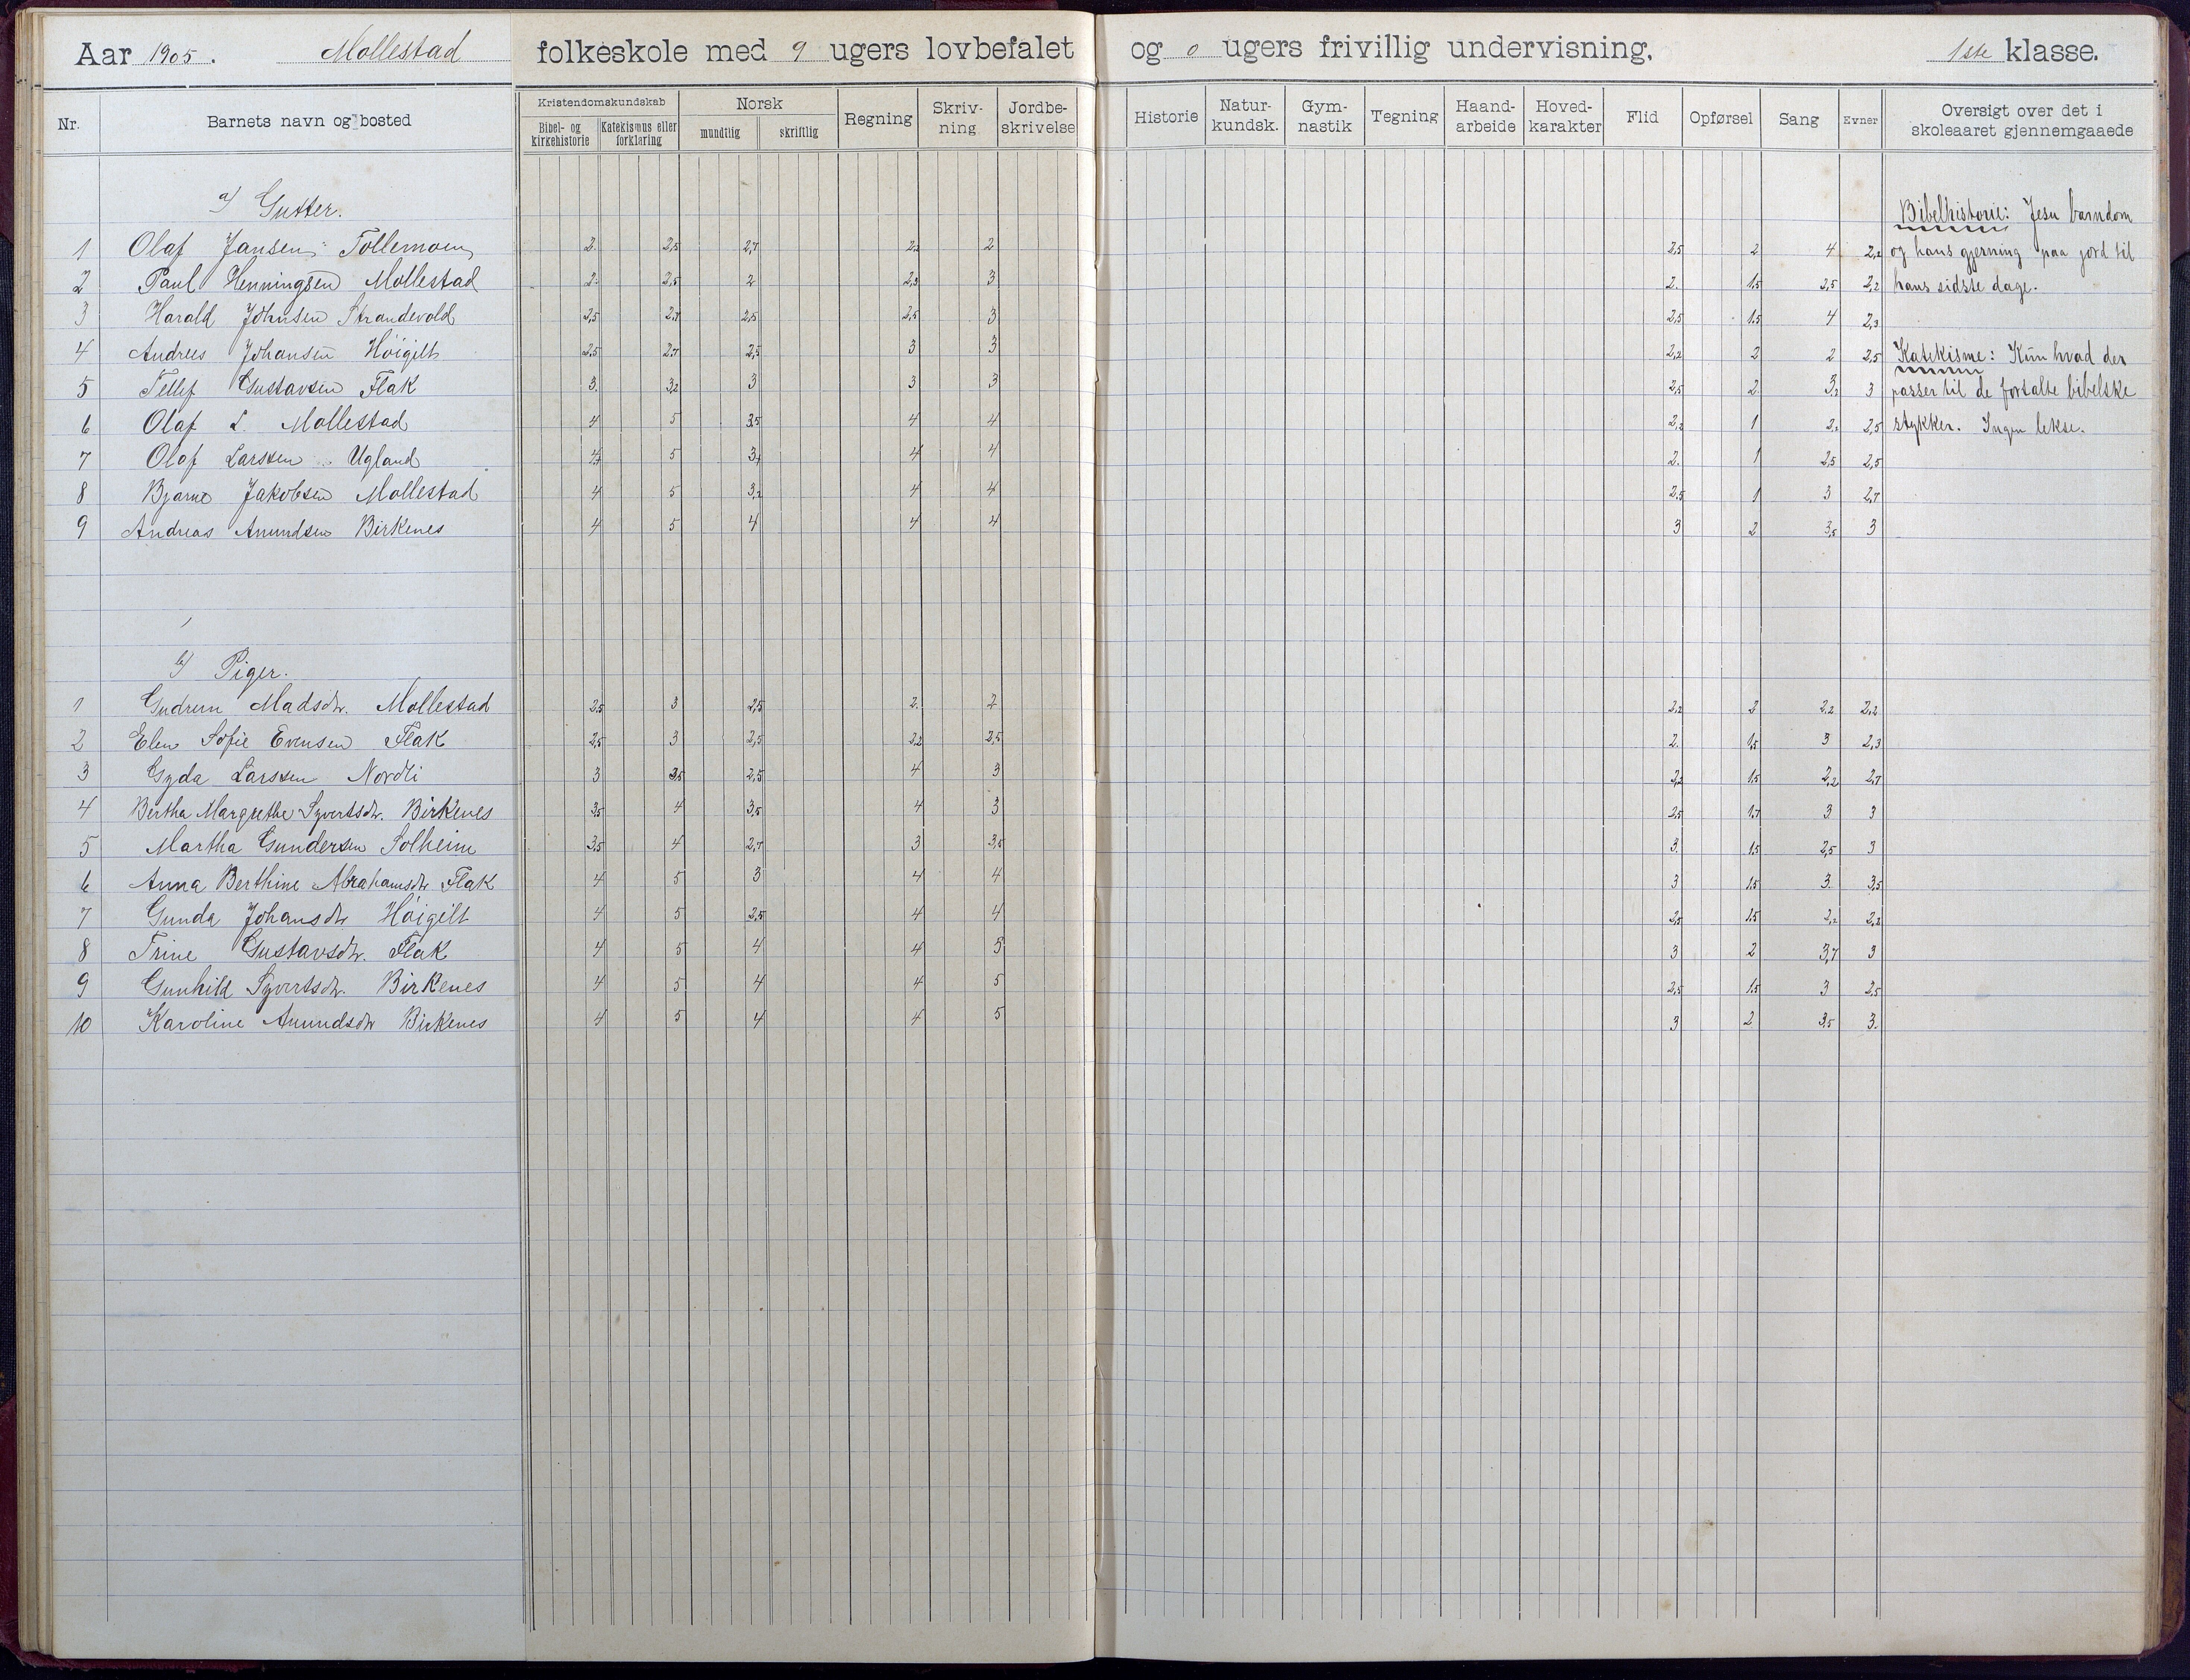 Aar 1905. Mollestad folkeskole med 9 ugers lovbefalet og 0 ugers frivillig undervisning, 1ste klasse.
Nr. Barnets navn og bosted Kristendomskundskab Bibel- og kirkehistorie Katekismus eller forklaring Norsk mundtlig skriftlig Regning Skriv-ning Jordbe-skrivelse Historie Natur-kundsk. Gym-nastik Tegning Haand-arbeide Hoved-karakter Flid Opførsel Sang Evner Oversigt over det i skoleaaret gjennemgaaede
a) Gutter. Bibelhistorie: Jesu barndom
1 Olaf Jansen Tollemoen 2. 2,5 2,7 2,2 2 2,5 2 4 2,2 og hans gjerning paa jord til
2 Paul Henningsen Mollestad 2. 2,5 2 2,3 3 2. 1,5 2,5 2,2 hans sidste dage.
3 Harald Johnsen Strandevold 2,5 2,7 2,5 2,5 3 2,5 1,5 4 2,3
4 Andrees Johansen Høigilt 2,5 2,7 2,5 3 3 2,2 2 2 2,5 Katekisme: Kun hvad der
5 Tellef Gustavsen Flak 3. 3,2 3 3 3 2,5 2. 3,2 3 passer til de fortalte bibelske
6 Olaf L. Mollestad 4 5 3,5 4 4 2,2 1 2,2 2,5 stykker. Ingen lekse.
7 Olaf Larssen Ugland 4 5 4 4 2. 1 2,5 2,5
8 Bjarne Jakobsen Mollestad 4 5 3,2 4 4 2,5 1 3 2,7
9 Andreas Anundsen Birkenes 4 5 4 4 4 3 2 3,5 3
b) Piger.
1 Gudrun Madsdtr. Mollestad 2,5 3 2,5 2. 2 2,2 2 2,2 2,2
2 Elen Sofie Evensen Flak 2,5 3 2,5 2,2 2,5 2. 1,5 3 2,3
3 Gyda Larssen Nordli 3 3,5 2,5 4 3 2,2 1,5 2,2 2,7
4 Bertha Margrethe Syvertsdtr. Birkenes 3,5 4 3,5 4 3 2,5 1,7 3 3
5 Martha Gundersen Solheim 3,5 4 2,7 3 3,5 3. 1,5 2,5 3
6 Anna Berthine Abrahamsdtr Flak 4 5 3 4 4 3 1,5 3. 3,5
7 Gunda Johansdtr Høigilt 4 5 2,5 4 4 2,5 1,5 2,2 2,2
8 Trine Gustavsdtr. Flak 4 5 4 4 5 3 2 3,7 3
9 Gunhild Syvertsdtr. Birkenes 4 5 4 4 5 2,5 1,5 3 2,5
10 Karoline Anundsdtr Birkenes 4 5 4 4 5 3 2 3,5 3.